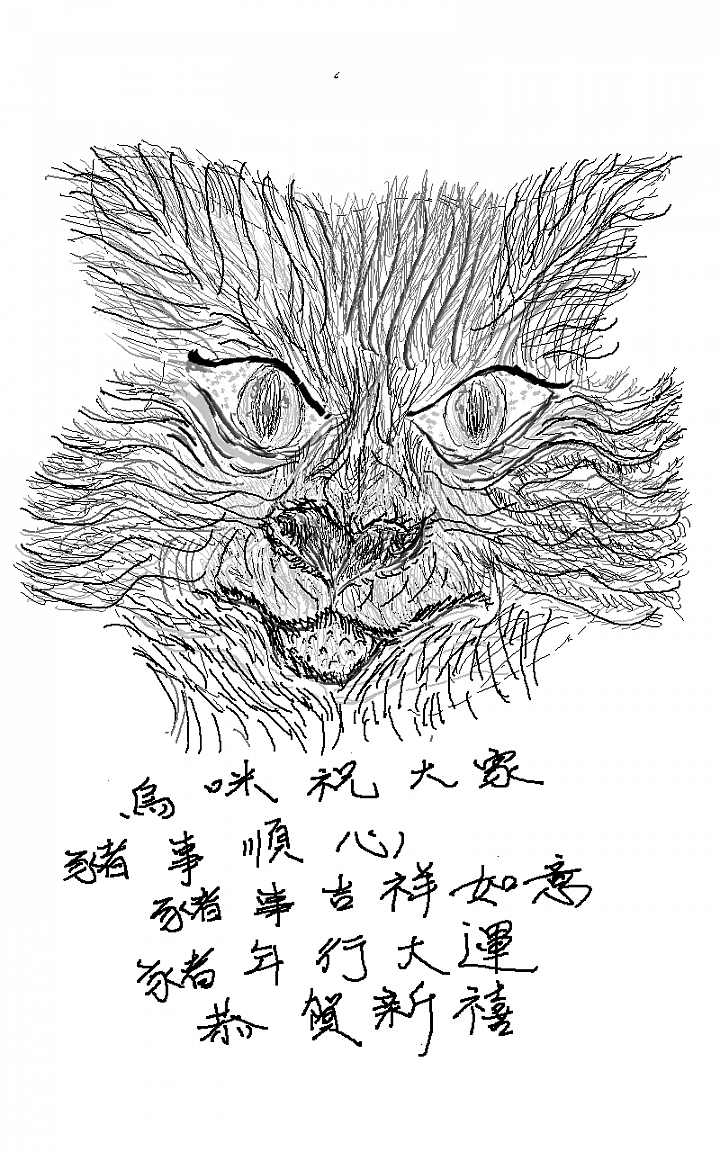 烏咪祝大家
豬事順心,
豬事吉祥如意
豬年行大運
恭賀新禧